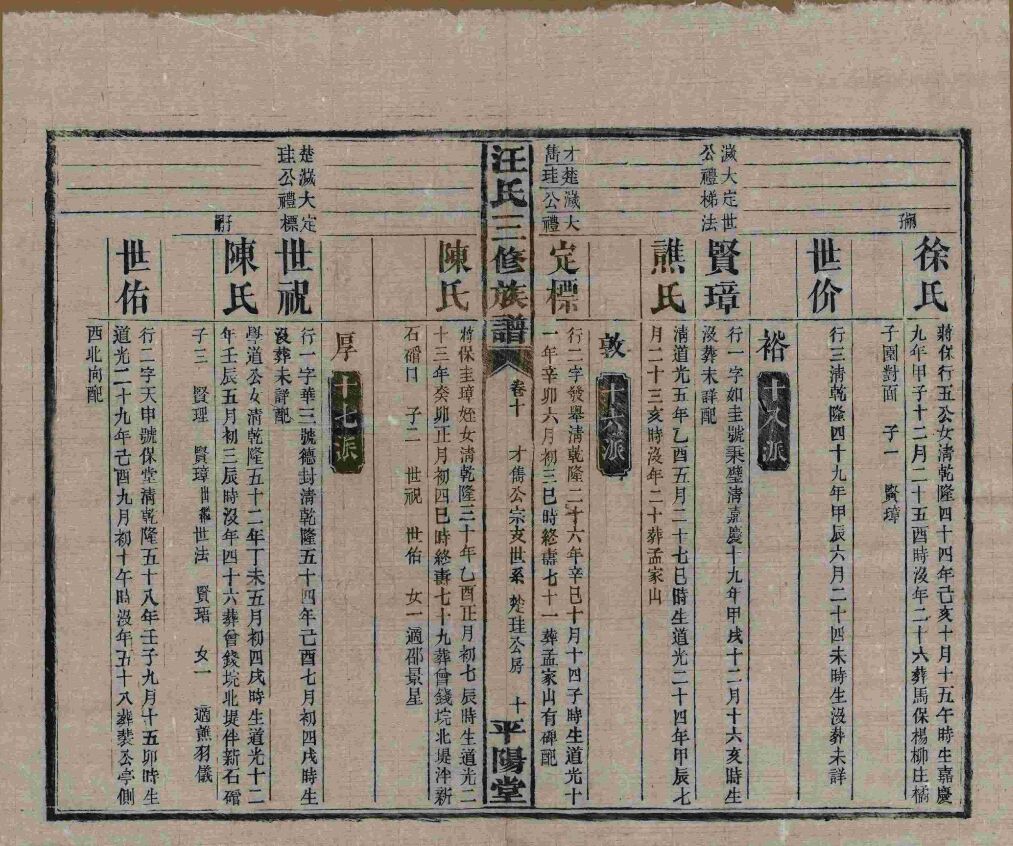 徐氏
蔣保行五公女清乾隆四十四年己亥十月十五午時生嘉慶
九年甲子十二月二十五酉時沒年二十六葬馬保楊柳庄橘
子園對面 子一 賢璋
世价
行三清乾隆四十九年甲辰六月二十四未時生沒葬未詳
裕
十八派
濊大定世
公禮梯法
賢璋
行一字如圭號秉璧清嘉慶十九年甲戌十二月十六亥時生
沒葬未詳配
譙氏
清道光五年乙酉五月二十七巳時生道光二十四年甲辰七
月二十三亥時沒年二十葬孟家山
敦
十六派
才楚濊大
雋珪公禮
定標
行二字發舉清乾隆二十六年辛巳十月十四子時生道光十
一年辛卯六月初三巳時終壽七十一葬孟家山有碑配
汪氏三修族譜
卷十
才雋公宗支世系 楚珪公房 十
平陽堂
陳氏
蔣保圭璋姪女清乾隆三十年乙酉正月初七辰時生道光二
十三年癸卯正月初四巳時終壽七十九葬曾錢垸北堤泮新
石磖口 子二 世祝 世佑 女一適邵景星
厚
十七派
楚濊大定
珪公禮標
世祝
行一字華三號德封清乾隆五十四年己酉七月初四戌時生
沒葬未詳配
陳氏
學道公女清乾隆五十二年丁未五月初四戌時生道光十二
年壬辰五月初三辰時沒年四十六葬曾錢垸北堤伴新石磖
子三 賢理 賢璋 世法 賢珸 女一 適譙羽儀
世佑
行二字天申號保堂清乾隆五十八年壬子九月十五卯時生
道光二十九年己酉九月初十午時沒年五十八葬裴公亭側
西北向配